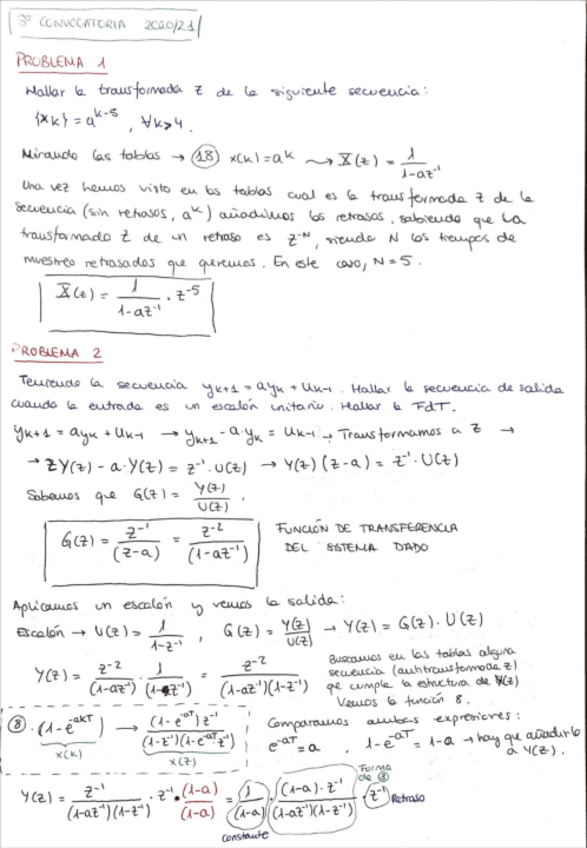 3ª CONVOCATORIA 2020/21
PROBLEMA 1
Hallar la transformada z de la siguiente secuencia:
{xk} = a^(k-5), ∀k>4.
Mirando las tablas → (18) x(k) = a^k ⇝ X(z) = 1/(1-az⁻¹)
Una vez hemos visto en las tablas cual es la transformada z de la
secuencia (sin retrasos, a^k) añadimos los retrasos, sabiendo que la
transformada z de un retraso es z^-N, siendo N los tiempos de
muestreo retrasados que queremos. En este caso, N=5.
X(z) = 1/(1-az⁻¹) · z⁻⁵
PROBLEMA 2
Teniendo la secuencia y_(k+1) = ay_k + u_(k-1). Hallar la secuencia de salida
cuando la entrada es un escalón unitario. Hallar la FdT.
y_(k+1) = ay_k + u_(k-1) → y_(k+1) - a·y_k = u_(k-1) → Transformamos a z →
→ zY(z) - a·Y(z) = z⁻¹·U(z) → Y(z)(z-a) = z⁻¹·U(z)
Sabemos que G(z) = Y(z)/U(z).
G(z) = z⁻¹/(z-a) = z⁻²/(1-az⁻¹)
FUNCIÓN DE TRANSFERENCIA
DEL SISTEMA DADO
Aplicamos un escalón y vemos la salida:
Escalón → U(z) = 1/(1-z⁻¹), G(z) = Y(z)/U(z) → Y(z) = G(z)·U(z)
Y(z) = z⁻²/(1-az⁻¹) · 1/(1-z⁻¹) = z⁻²/((1-az⁻¹)(1-z⁻¹))
Buscamos en las tablas alguna
secuencia (antitransformada z)
que cumpla la estructura de Y(z)
Vemos la función 8.
(8) · (1-e^(-akT)) → (1-e^(-aT))z⁻¹/((1-z⁻¹)(1-e^(-aT)z⁻¹))
x(k)
x(z)
Comparamos ambas expresiones:
e^(-aT) = a, 1-e^(-aT) = 1-a → hay que añadirlo
a Y(z).
Y(z) = z⁻¹/((1-az⁻¹)(1-z⁻¹)) · z⁻¹ · (1-a)/(1-a) = 1/(1-a) · (1-a)·z⁻¹/((1-az⁻¹)(1-z⁻¹)) · z⁻¹
Forma
de (8)
Retraso
constante